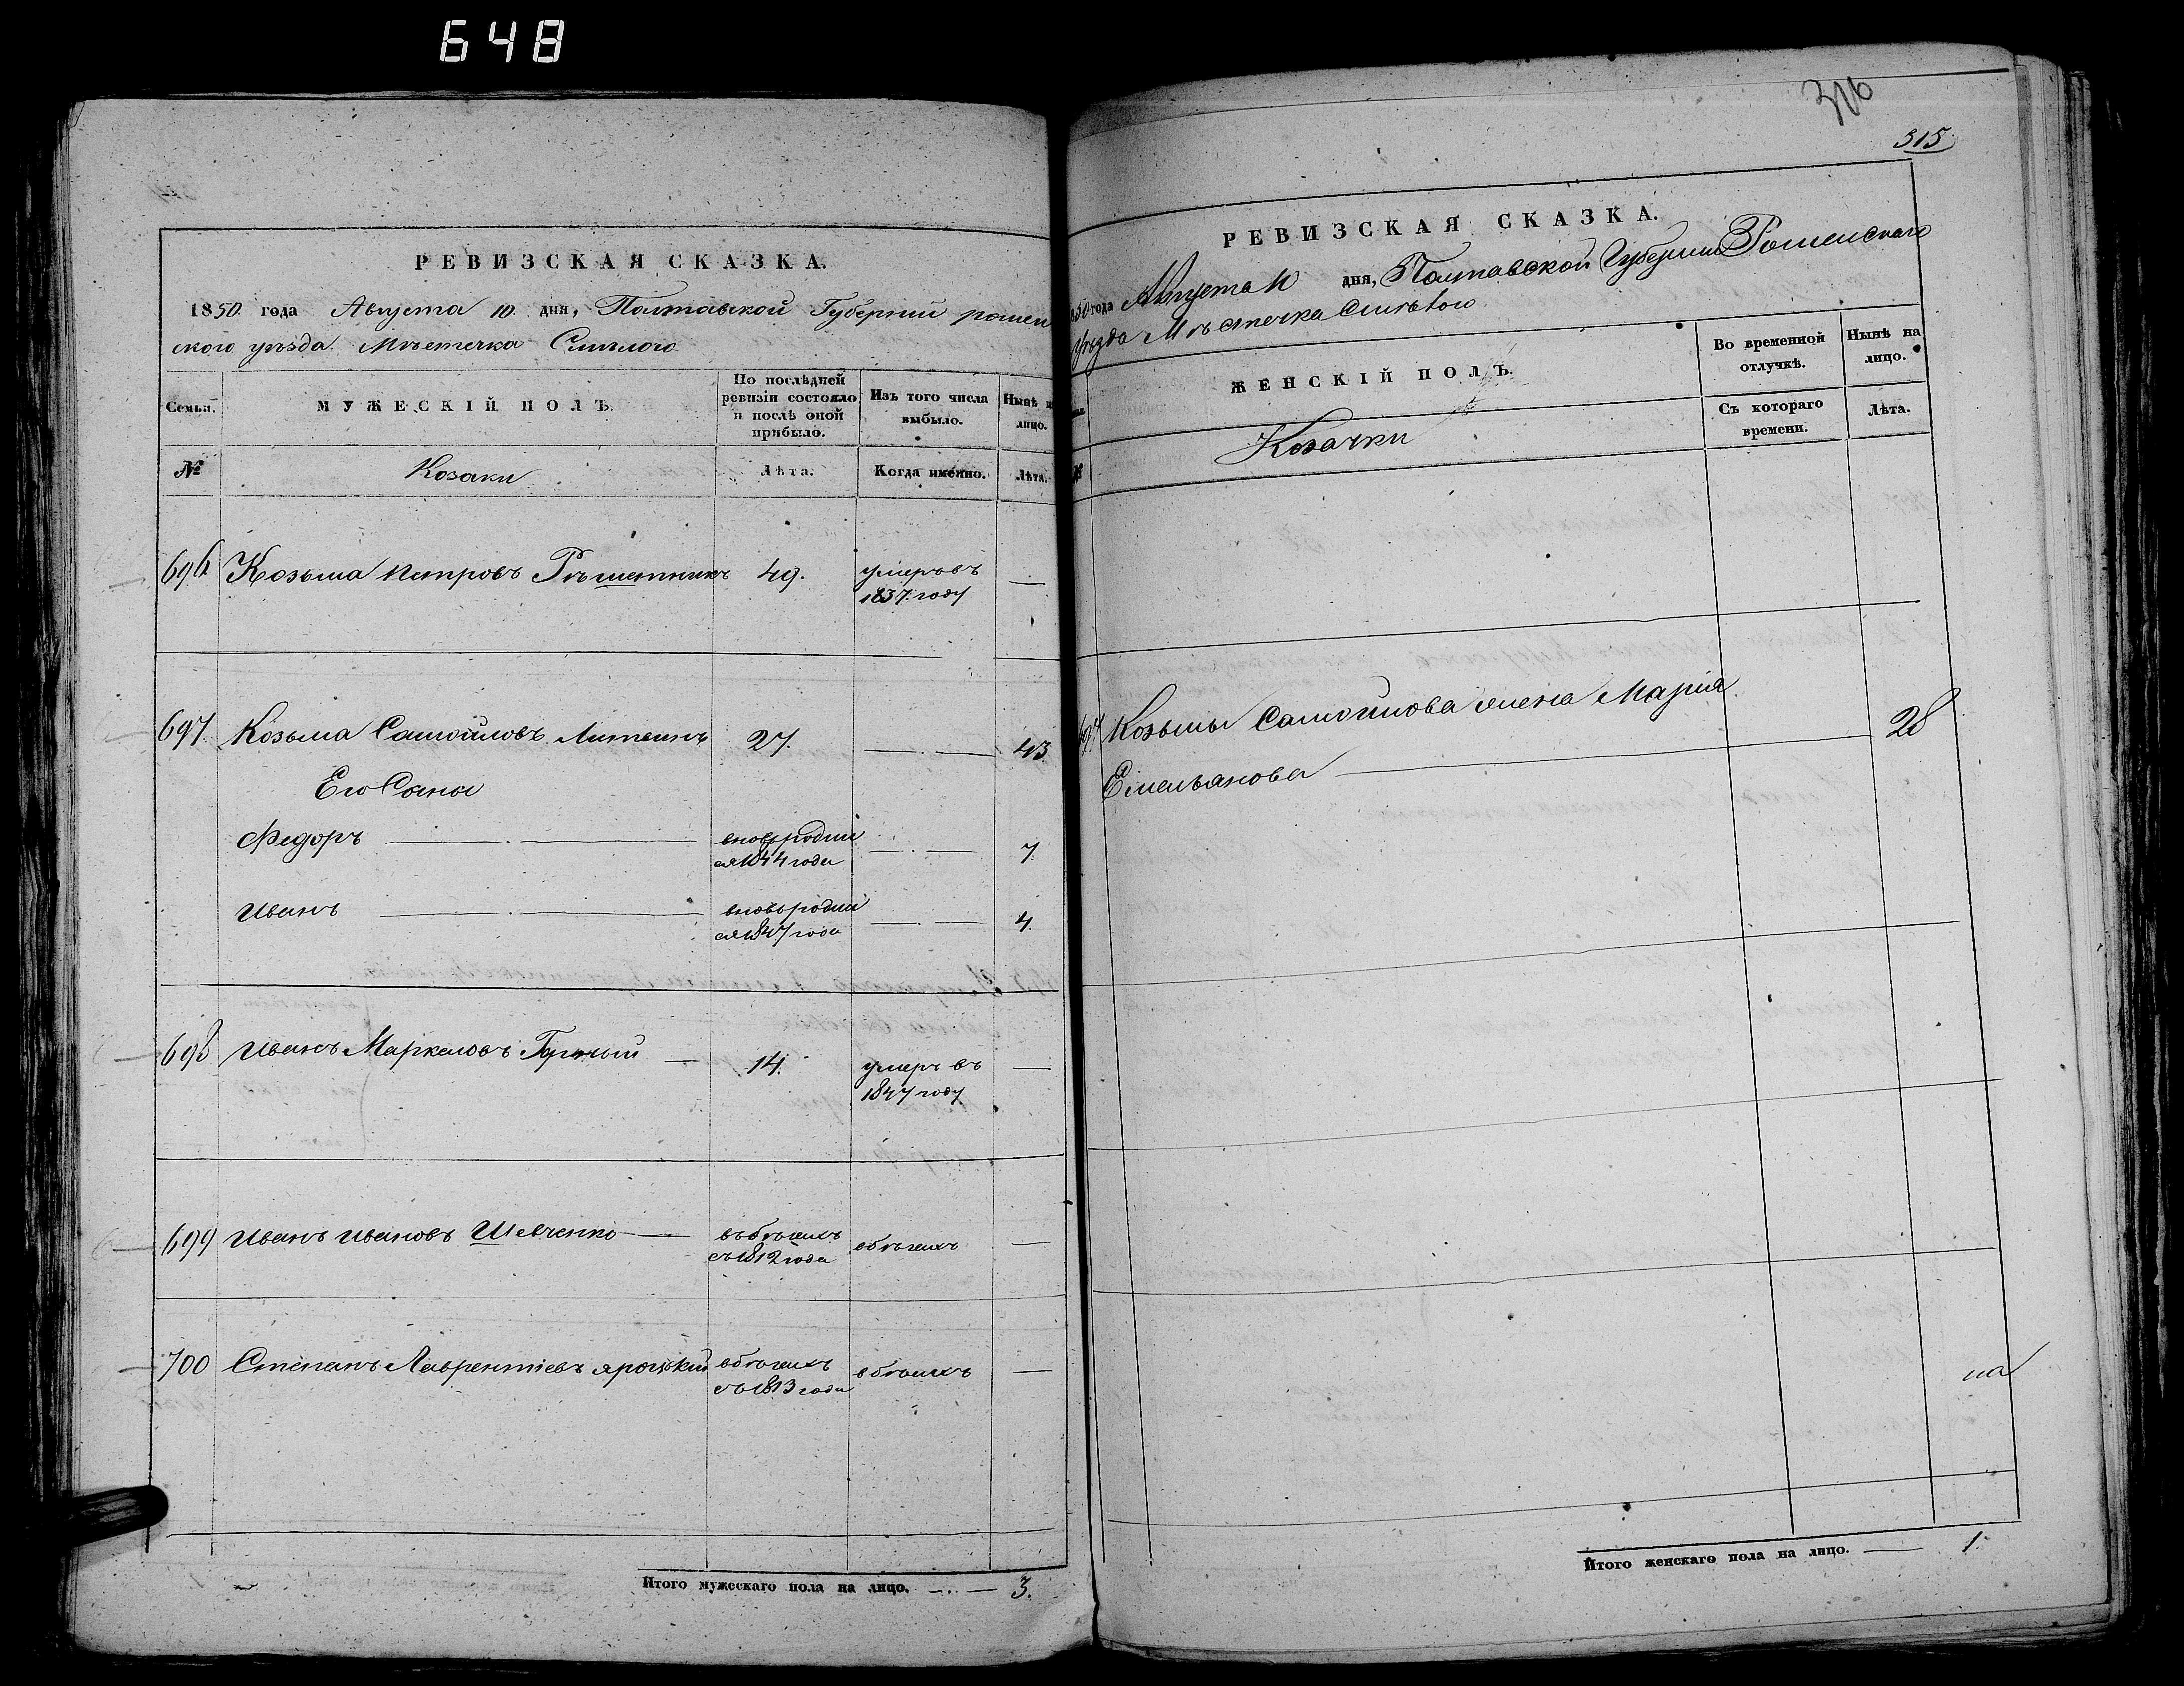 648
РЕВИЗСКАЯ СКАЗКА.
1850 года Августа 10 дня, Полтавской Губернии ромен
ского уѣзда Мѣстечка Смѣлого
Семьи.
МУЖЕСКІЙ ПОЛЪ.
По послѣдней
ревизіи состояло
и послѣ оной
прибыло.
Изъ того числа
выбыло.
Нынѣ н
лицо.
№
Козаки
Лѣта.
Когда именно.
Лѣта.
696 Козьма Петровъ Рѣшетникъ 49. умеръ въ —
1837. году
697 Козьма Самойловъ Литвинъ 27. — 43
Его Сына
Федоръ — вновь роdил — 7.
ся 1844 года
Иванъ — вновь родил — 4.
ся 1847 года
698 Иванъ Маркеловъ — 14. умеръ въ —
1847 году
699 Иванъ Ивановъ Шевченко — въ бѣгахъ вбѣгахъ —
съ 1812 года
700 Степанъ Лаврентіевъ вбѣгахъ вбѣгахъ —
съ 1813 года
Итого мужескаго пола на лицо. — 3.
316
315
РЕВИЗСКАЯ СКАЗКА.
850 года Августа 10 дня, Полтавской Губернии Роменскаго
уѣзда Мѣстечка Смѣлого
ЖЕНСКІЙ ПОЛЪ.
Во временной
отлучкѣ.
Нынѣ на
лицо.
Съ котораго
времени.
Лѣта.
Козачки
697 Козьмы Самойлова жена Марія
Емельянова — 28
на
Итого женскаго пола на лицо. — 1.